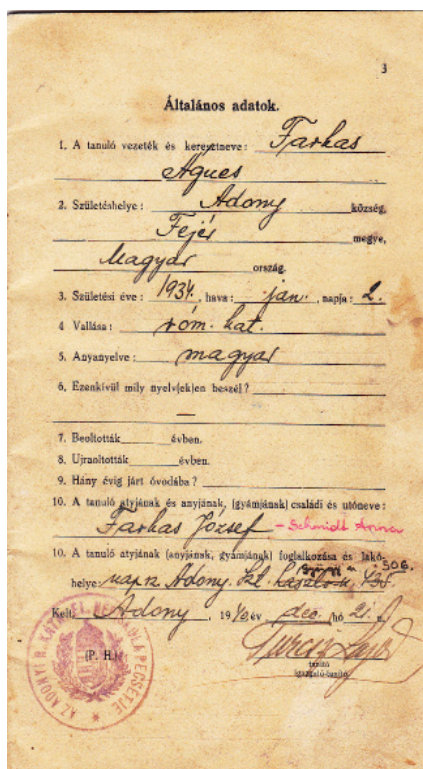 3
Általános adatok.
1. A tanuló vezeték és keresztneve: Farkas
Ágnes
2. Születéshelye: Adony község,
Fejér megye,
Magyar ország.
3. Születési éve: 1934, hava: jan., napja: 2.
4 Vallása: róm. kat.
5. Anyanyelve: magyar
6. Ezenkívül mily nyelv(ek)en beszél?
—
7. Beoltották évben.
8. Ujraoltották évben.
9. Hány évig járt óvodába?
10. A tanuló atyjának és anyjának, (gyámjának) családi és utóneve:
Farkas József – Schmidt Anna
10. A tanuló atyjának (anyjának, gyámjának) foglalkozása és lakó-
506.
helye: Adony
Kelt, Adony, 1940. év dec. hó 21. n.
(P. H.)
tanító
igazgató-tanító
AZ ADONYI R. KATH. EL. NÉPISKOLA PECSÉTJE